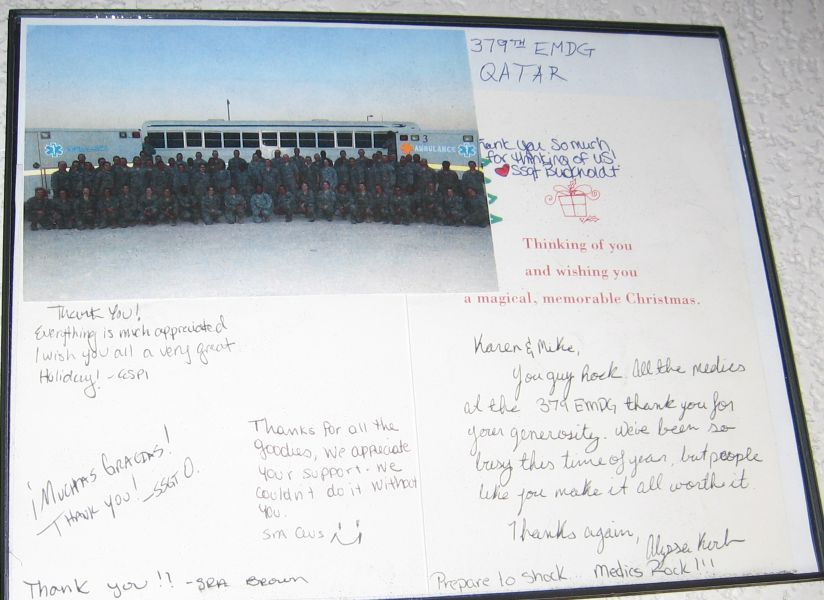 379TH EMDG
QATAR
AMBULANCE
3
AMBULANCE
Thank you so much
for thinking of us!
SSgt Buckholdt
Thinking of you
and wishing you
a magical, memorable Christmas.
Thank You!
Everything is much appreciated
I wish you all a very great
Holiday!
¡MUCHAS GRACIAS!
THANK YOU! -SSGT O.
Thanks for all the
goodies, we appreciate
your support. we
couldn't do it without
you.
Thank you!! -SRA BROWN
Karen & Mike,
You guy rock. All the medics
at the 379 EMDG thank you for
your generosity. We've been so
busy this time of year, but people
like you make it all worth it.
Thanks again,
Alyssa
Prepare to shock... Medics Rock!!!